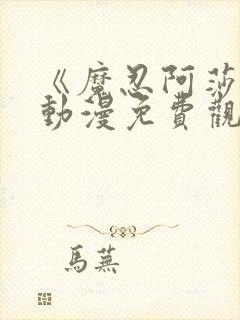 《魔忍阿莎
動漫免費觀
馬蕪